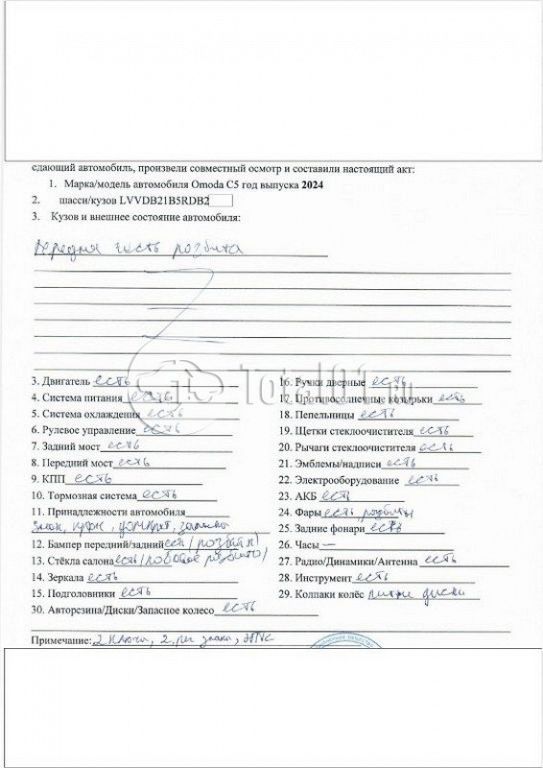 сдающий автомобиль, произвели совместный осмотр и составили настоящий акт:
1. Марка/модель автомобиля Omoda C5 год выпуска 2024
2. шасси/кузов LVVDB21B5RDB2
3. Кузов и внешнее состояние автомобиля:
Передняя часть розбита
3. Двигатель есть
4. Система питания есть
5. Система охлаждения есть
6. Рулевое управление есть
7. Задний мост есть
8. Передний мост есть
9. КПП есть
10. Тормозная система есть
11. Принадлежности автомобиля
знак,
12. Бампер передний/задний есть
13. Стёкла салона есть (лобовое
14. Зеркала есть
15. Подголовники есть
16. Ручки дверные есть
17. Противосолнечные козырьки есть
18. Пепельницы есть
19. Щетки стеклоочистителя есть
20. Рычаги стеклоочистителя есть
21. Эмблемы/надписи есть
22. Электрооборудование есть
23. АКБ есть
24. Фары есть розбиты
25. Задние фонари есть
26. Часы —
27. Радио/Динамики/Антенна есть
28. Инструмент есть
29. Колпаки колёс литые диски
30. Авторезина/Диски/Запасное колесо есть
Примечание: 2 ключа, 2 рег знака, ЭПТС
Total01.ru